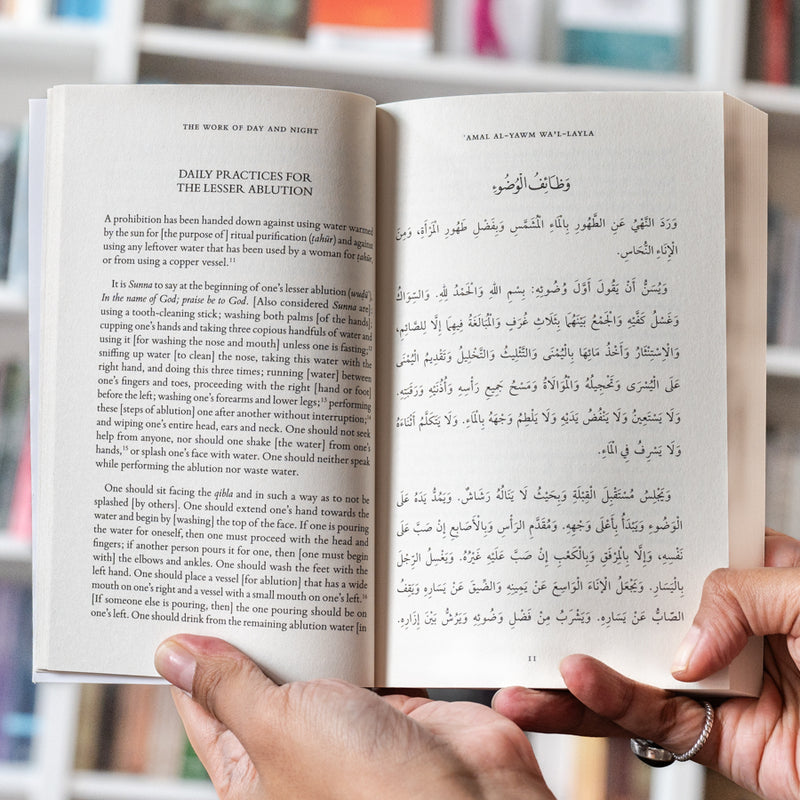 THE WORK OF DAY AND NIGHT
DAILY PRACTICES FOR
THE LESSER ABLUTION
A prohibition has been handed down against using water warmed
by the sun for [the purpose of] ritual purification (ṭahūr) and against
using any leftover water that has been used by a woman for ṭahūr,
or from using a copper vessel.11
It is Sunna to say at the beginning of one's lesser ablution (wuḍū'),
In the name of God; praise be to God. [Also considered Sunna are]:
using a tooth-cleaning stick; washing both palms [of the hands];
cupping one's hands and taking three copious handfuls of water and
using it [for washing the nose and mouth] unless one is fasting;12
sniffing up water [to clean] the nose, taking this water with the
right hand, and doing this three times; running [water] between
one's fingers and toes, proceeding with the right [hand or foot]
before the left; washing one's forearms and lower legs;13 performing
these [steps of ablution] one after another without interruption;14
and wiping one's entire head, ears and neck. One should not seek
help from anyone, nor should one shake [the water] from one's
hands,15 or splash one's face with water. One should neither speak
while performing the ablution nor waste water.
One should sit facing the qibla and in such a way as to not be
splashed [by others]. One should extend one's hand towards the
water and begin by [washing] the top of the face. If one is pouring
the water for oneself, then one must proceed with the head and
fingers; if another person pours it for one, then [one must begin
with] the elbows and ankles. One should wash the feet with the
left hand. One should place a vessel [for ablution] that has a wide
mouth on one's right and a vessel with a small mouth on one's left.16
[If someone else is pouring, then] the one pouring should be on
one's left. One should drink from the remaining ablution water [in
'AMAL AL-YAWM WA'L-LAYLA
وَظَائِفُ الْوُضُوءِ
وَرَدَ النَّهْيُ عَنِ الطَّهُورِ بِالْمَاءِ الْمُشَمَّسِ وَبِفَضْلِ طَهُورِ الْمَرْأَةِ، وَمِنَ
الْإِنَاءِ النُّحَاسِ.
وَيُسَنُّ أَنْ يَقُولَ أَوَّلَ وُضُوئِهِ: بِسْمِ اللهِ وَالْحَمْدُ لِلهِ. وَالسِّوَاكُ
وَغَسْلُ كَفَّيْهِ وَالْجَمْعُ بَيْنَهُمَا بِثَلَاثِ غُرَفٍ وَالْمُبَالَغَةُ فِيهِمَا إِلَّا لِلصَّائِمِ،
وَالْاِسْتِنْثَارُ وَأَخْذُ مَائِهَا بِالْيُمْنَى وَالتَّثْلِيثُ وَالتَّخْلِيلُ وَتَقْدِيمُ الْيُمْنَى
عَلَى الْيُسْرَى وَتَحْجِيلُهُ وَالْمُوَالَاةُ وَمَسْحُ جَمِيعِ رَأْسِهِ وَأُذُنَيْهِ وَرَقَبَتِهِ.
وَلَا يَسْتَعِينُ وَلَا يَنْفُضُ يَدَيْهِ وَلَا يَلْطِمُ وَجْهَهُ بِالْمَاءِ. وَلَا يَتَكَلَّمُ أَثْنَاءَهُ
وَلَا يَسْرِفُ فِي الْمَاءِ.
وَيَجْلِسُ مُسْتَقْبِلَ الْقِبْلَةِ وَبِحَيْثُ لَا يَنَالُهُ رَشَاشٌ. وَيَمُدُّ يَدَهُ عَلَى
الْوَضُوءِ وَيَبْدَأُ بِأَعْلَى وَجْهِهِ. وَمُقَدَّمِ الرَّأْسِ وَبِالْأَصَابِعِ إِنْ صَبَّ عَلَى
نَفْسِهِ، وَإِلَّا بِالْمِرْفَقِ وَبِالْكَعْبِ إِنْ صَبَّ عَلَيْهِ غَيْرُهُ. وَيَغْسِلُ الرِّجْلَ
بِالْيَسَارِ. وَيَجْعَلُ الْإِنَاءَ الْوَاسِعَ عَنْ يَمِينِهِ وَالضَّيِّقَ عَنْ يَسَارِهِ وَيَقِفُ
الصَّابُّ عَنْ يَسَارِهِ. وَيَشْرَبُ مِنْ فَضْلِ وَضُوئِهِ وَيَرُشُّ بَيْنَ إِزَارِهِ.
11